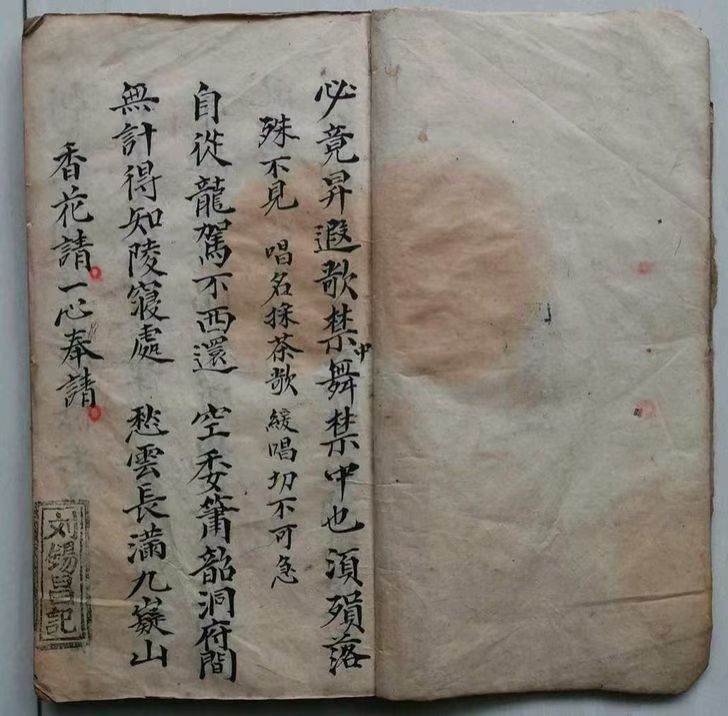 必竟昇遐歌禁中舞禁中也須殞落
殊不見 唱名採茶歌 緩唱切不可急
自從龍駕不西還 空委簫韶洞府間
無計得知陵寢處 愁雲長滿九嶷山
香花請一心奉請
刘錫昌記